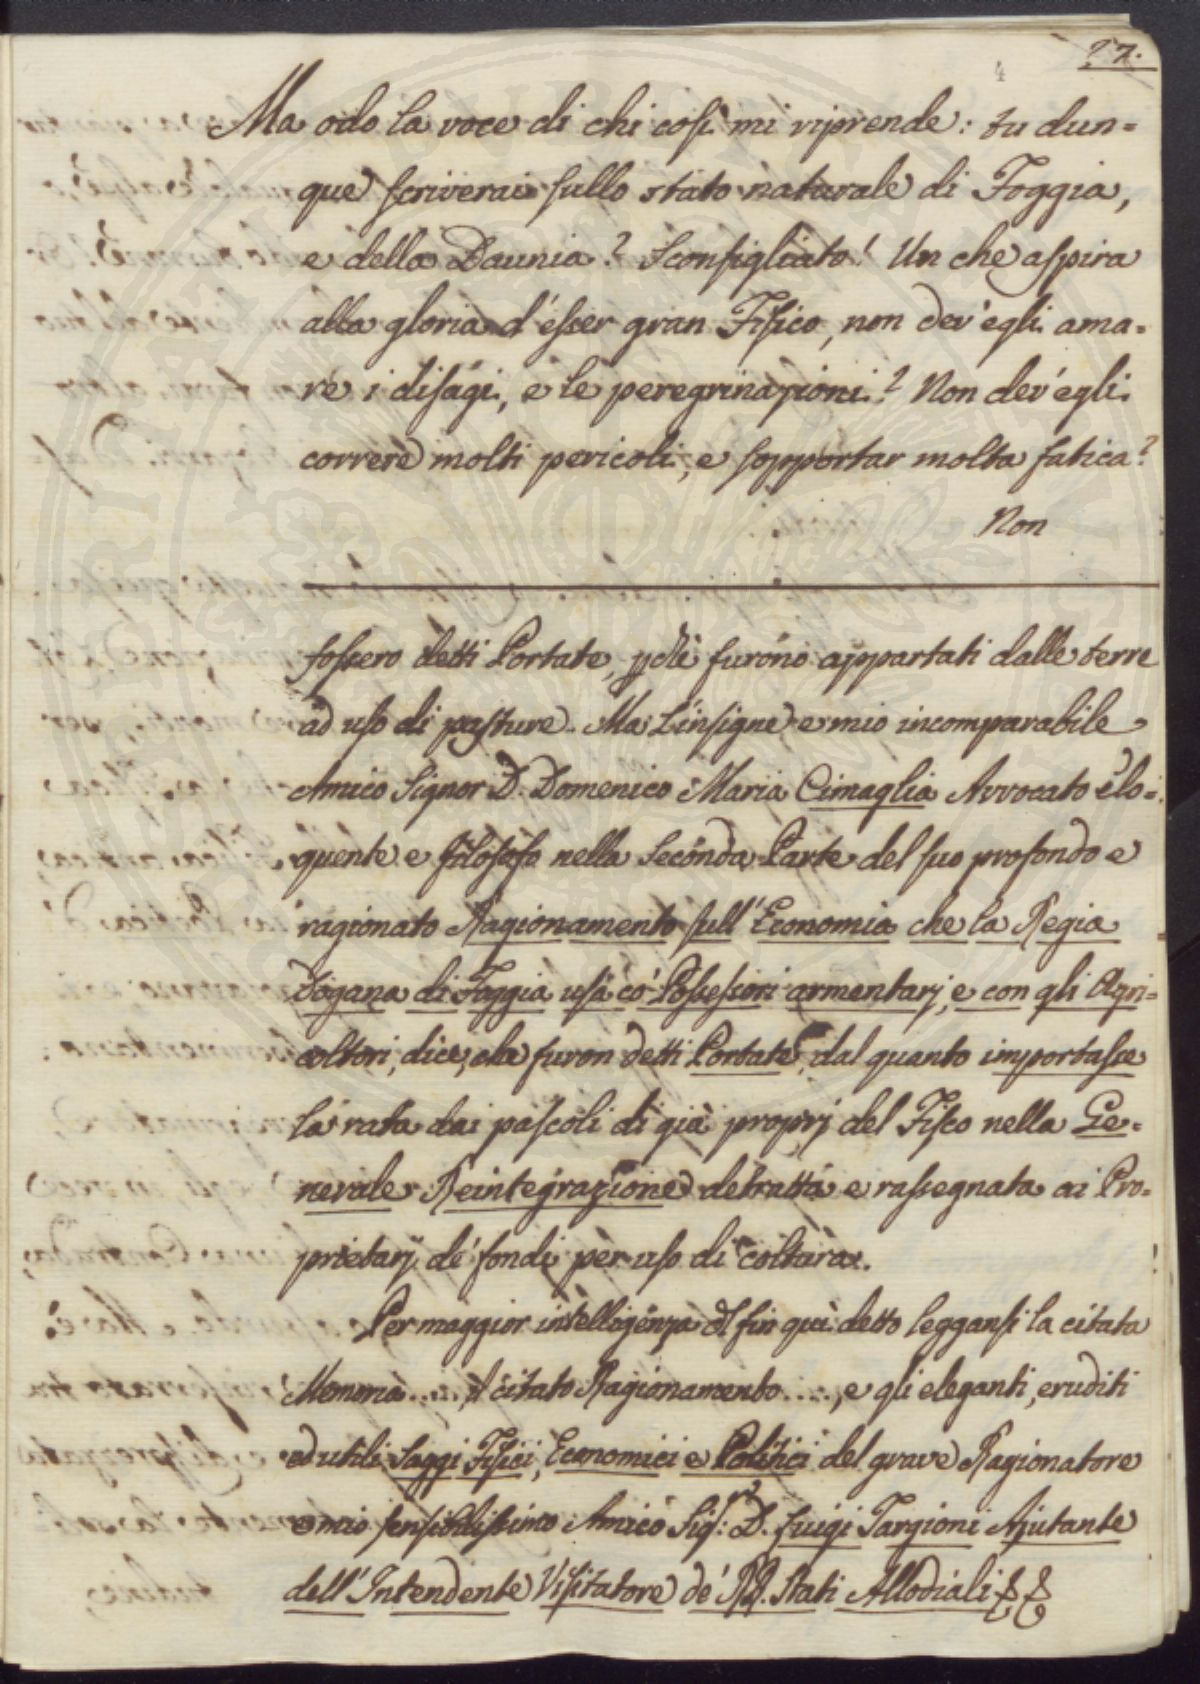 27.
4
Ma odo la voce di chi così mi riprende: tu dun=
que scriverai sullo stato naturale di Foggia,
e della Daunia? Sconsigliato! Un che aspira
alla gloria d'esser gran Fisico, non dev'egli ama=
re i disagi, e le peregrinazioni? Non dev'egli
correre molti pericoli, e sopportar molta fatica?
Non
fossero detti Portate, pchè furono appartati dalle terre
ad uso di pasture. Ma l'insigne e mio incomparabile
Amico Signor D. Domenico Maria Cimaglia Avvocato elo=
quente e filosofo nella Seconda Parte del suo profondo e
ragionato Ragionamento sull'Economia che la Regia
Dogana di Foggia usa co' Possessori armentarj, e con gli Agri=
coltori, dice, che furon detti Portate, dal quanto importasse
la rata dai pascoli di già proprj del Fisco nella Ge=
nerale Reintegrazione detratta e rassegnata ai Pro=
prietarj de' fondi per uso di coltura.
Per maggior intelligenza del fin quì detto leggansi la citata
Memma....., il citato Ragionamento....., e gli eleganti, eruditi
ed utili Saggi Fisici, Economici e Politici del grave Ragionatore
e mio sensibilissimo Amico Sig.r D. Luigi Targioni Ajutante
dell'Intendente Visitatore de' RR. Stati Allodiali